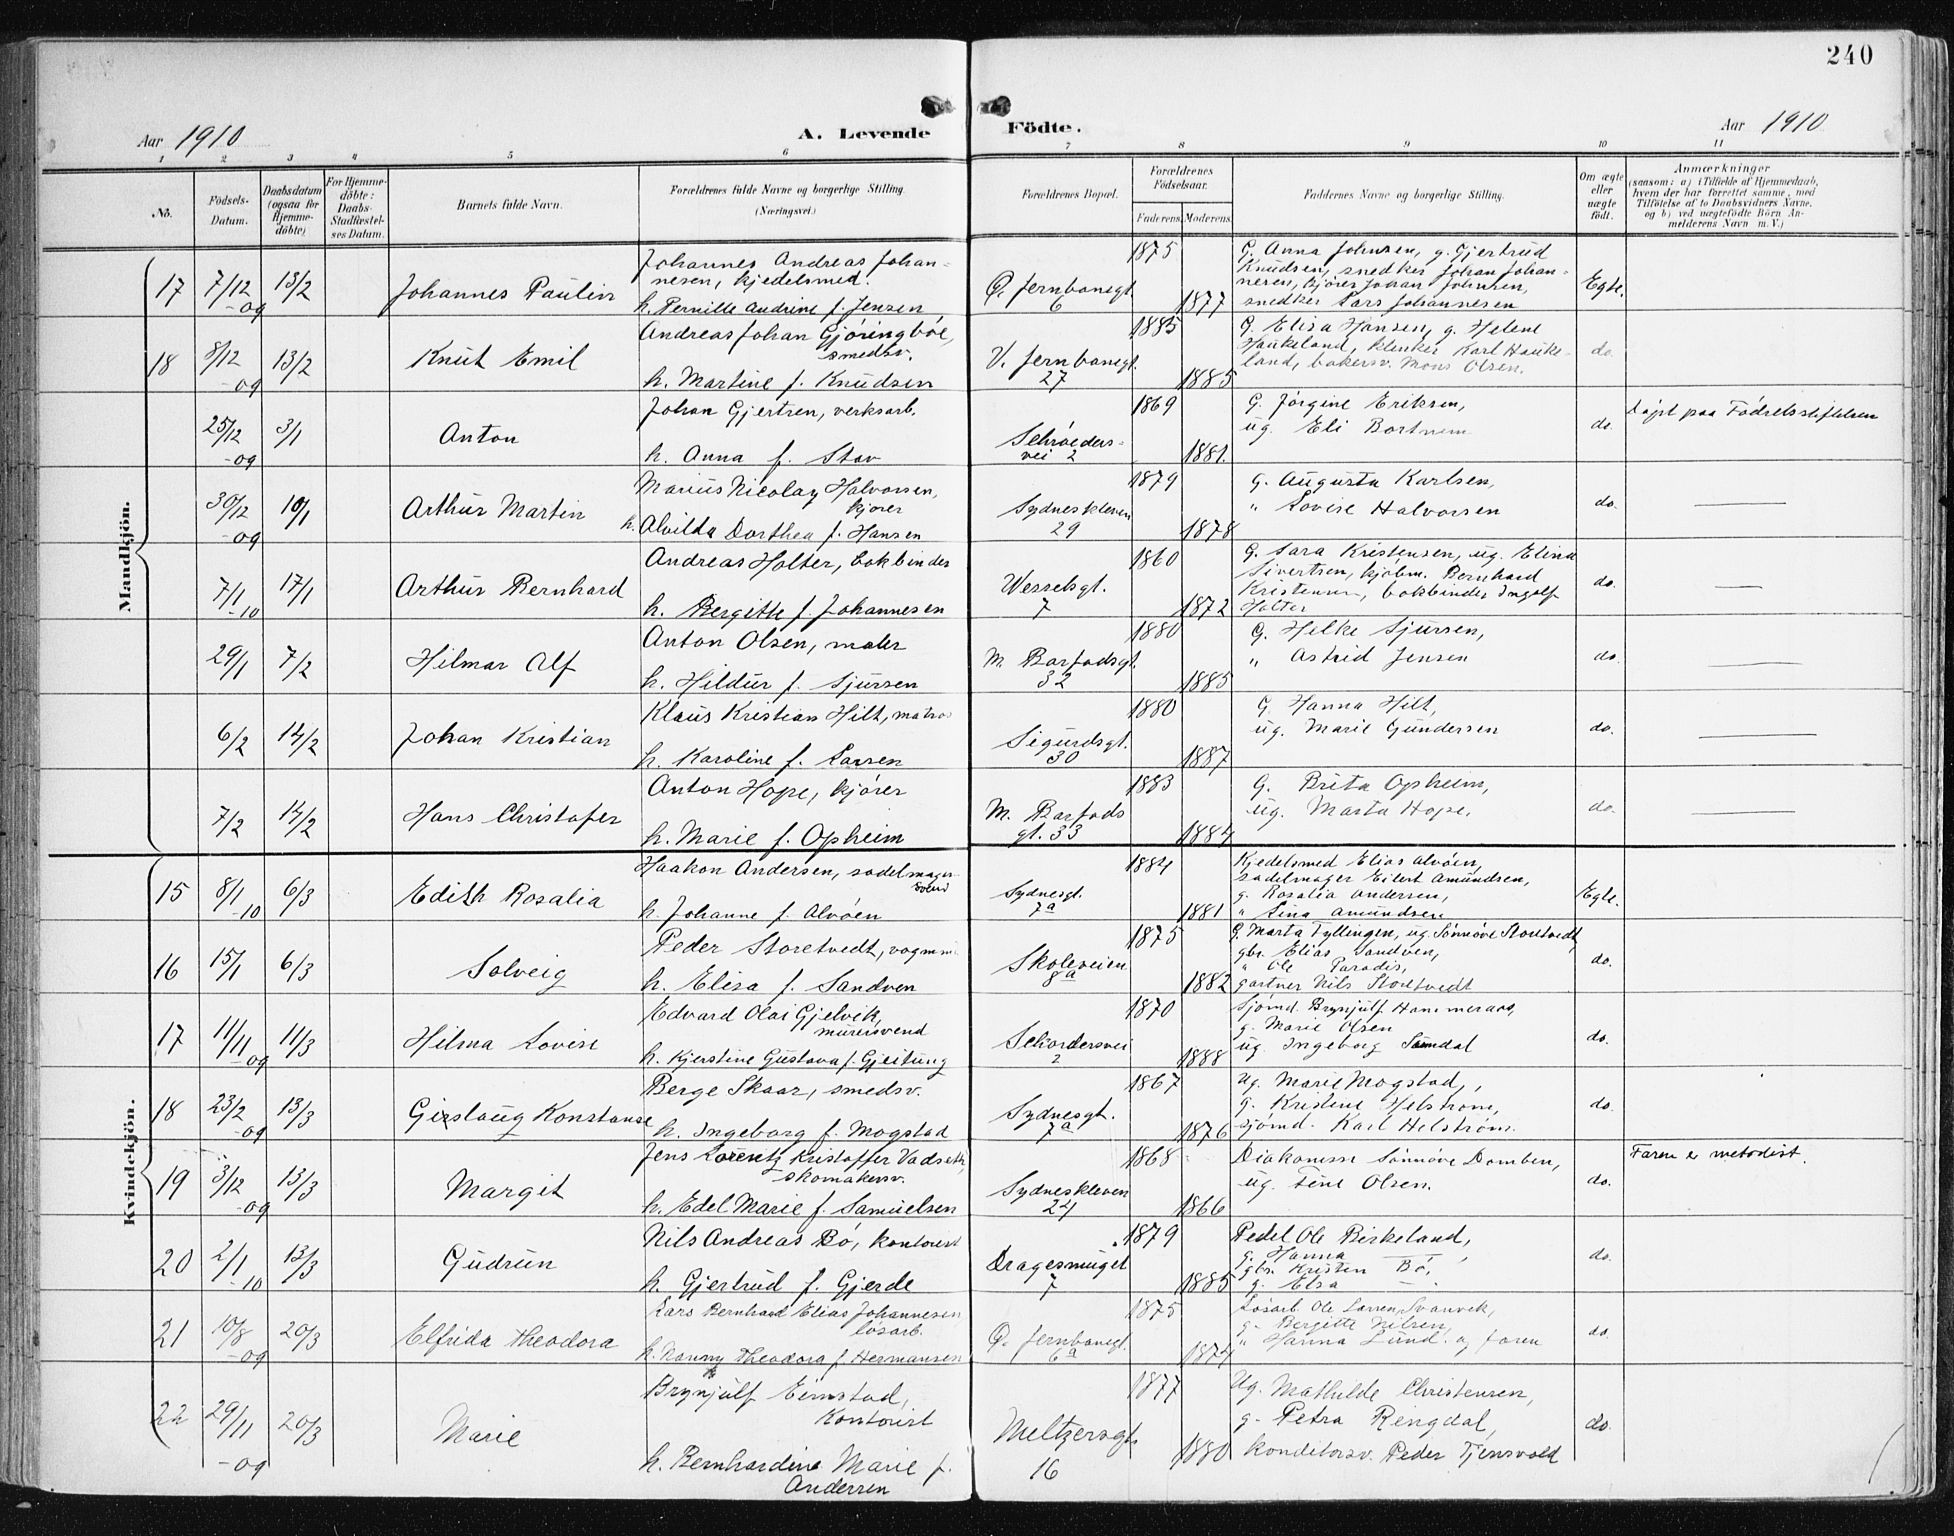 240
Aar 1910
A. Levende
Födte.
Aar 1910
1 2 3 4 5 6 7 8 9 10 11
No.
Födsels-
Datum.
Daabsdatum
(ogsaa for
Hjemme-
döbte)
For Hjemme-
döbte:
Daabs-
Stadfæstel-
ses Datum.
Barnets fulde Navn.
Forældrenes fulde Navne og borgerlige Stilling.
(Næringsvei.)
Forældrenes Bopæl.
Forældrenes
Födselsaar.
Faderens. Moderens.
Faddernes Navne og borgerlige Stilling.
Om ægte
eller
uægte
født.
Anmærkninger
(saasom: a) i Tilfælde af Hjemmedaab,
hvem der har forrettet samme, med
Tilföielse af to Daabsvidners Navne,
og b) ved uægtefödte Börn An-
melderens Navn m. V.)
Mandkjön.
17 7/12 -09 13/2 Johannes Paulin
Johannes Andreas Johan-
nesen, kjedelsmed.
h. Pernille Andrine f. Jensen
Ö. Jernbanegt.
6
1875 1877
G. Anna Johnsen, g. Gjertrud
Knudsen, snedker Johan Johan-
nesen, kjører Johan Johnsen,
snedker Lars Johannesen
Egte.
18 8/12 -09 13/2 Knut Emil
Andreas Johan Gjöringböe,
smedsv.
h. Martine f. Knudsen
V. Jernbanegt.
27
1885 1885
G. Elisa Hansen, g. Helene
Haukeland, klenker Karl Hauke-
land, bakersv. Mons Olsen.
do.
25/12 -09 3/1 Anton
Johan Gjertsen, verksarb.
h. Anna f. Stav
Schröeders-
vei 2
1869 1881.
G. Jörgine Eriksen,
ug. Eli Bortnem
do.
Döpt paa Födselsstiftelsen
30/12 -09 10/1 Arthur Martin
Marius Nicolay Halvorsen,
kjører
h. Alvilda Dorthea f. Hansen
Sydneskleven
29
1879 1878
g. Augusta Karlsen,
" Lovise Halvorsen
do.
7/1 -10 17/1 Arthur Bernhard
Andreas Holter, bokbinder
h. Bergitte f. Johannesen
Wesselsgt.
7
1860 1872
G. Sara Kristensen, ug. Elina
Sivertsen, kjöbm. Bernhard
Kristensen, bokbinder Ingolf
Holter
do.
29/1 7/2 Hilmar Alf
Anton Olsen, maler
h. Hildur f. Sjursen
M. Barfodsgt.
32
1880 1885
G. Hilke Sjursen,
" Astrid Jensen
do.
6/2 14/2 Johan Kristian
Klaus Kristian Hilt, matros
h. Karoline f. Larsen
Sigurdsgt.
30
1880 1887
G. Hanna Hilt,
ug. Marie Gundersen
do.
7/2 14/2 Hans Christofer
Anton Hope, kjører
h. Marie f. Opheim
M. Barfods
gt. 33
1883 1884
G. Brita Opheim,
ug. Marta Hope,
do.
Kvindekjön.
15 8/1 -10 6/3 Edith Rosalia
Haakon Andersen, sadelmager-
svend
h. Johanne f. Alvöen
Sydnesgt.
7a
1884 1881
Kjedelsmed Elias Alvöen,
sadelmager Eilert Amundsen,
g. Rosalia Andersen,
" Lina Amundsen
Egte.
16 15/1 6/3 Solveig
Peder Storetvedt, vognm.
h. Elisa f. Sandven
Skoleveien
8a
1875 1882
G. Marta Tyllingen, ug. Sönnöve Storetvedt,
gbr. Elias Sandven,
" Ole Paradis,
gartner Nils Storetvedt
do.
17 11/11 -09 11/3 Hilma Lovise
Edvard Olai Gjelvik,
murersvend
h. Kjerstine Gustava f. Gjeitung
Schrödersvei
2
1870 1888
Sjömd. Brynjulf Hammeraas,
g. Marie Olsen
ug. Ingeborg Samdal
do.
18 23/2 -09 13/3 Gislaug Konstanse
Berge Skaar, smedsv.
h. Ingeborg f. Mogstad
Sydnesgt.
7a
1867 1876
Ug. Marie Mogstad,
g. Kristine Helström,
sjömd. Karl Helström.
do.
19 3/12 -09 13/3 Margit
Jens Lorentz Kristoffer Vadseth,
skomakersv.
h. Edel Marie f. Samuelsen
Sydneskleven
24
1868 1866
Diakonisse Sönnöve Domben,
ug. Tine Olsen.
do.
Faren er metodist.
20 2/1 -10 13/3 Gudrun
Nils Andreas Bö, kontorist
h. Gjertrud f. Gjerde
Dragesmuget
7
1879 1885
Pedel Ole Birkeland,
g. Hanna — ,
gbr. Kristen Bö,
g. Elsa — .
do.
21 10/8 -09 20/3 Elfrida Theodora
Lars Bernhard Elias Johannesen,
løsarb.
h. Nanny Theodora f. Hermansen
Ö. Jernbanegt.
6a
1875 1874
Løsarb. Ole Larsen Svanvik,
g. Bergitte Nilsen,
" Hanna Lund. og faren
do.
22 29/11 -09 20/3 Marie
Brynjulf Eimstad,
Kontorist
h. Bernhardine Marie f.
Andersen
Meltzersgt.
16
1877 1880
Ug. Mathilde Christensen,
g. Petra Ringdal,
konditorsv. Peder Tjensvold
do.